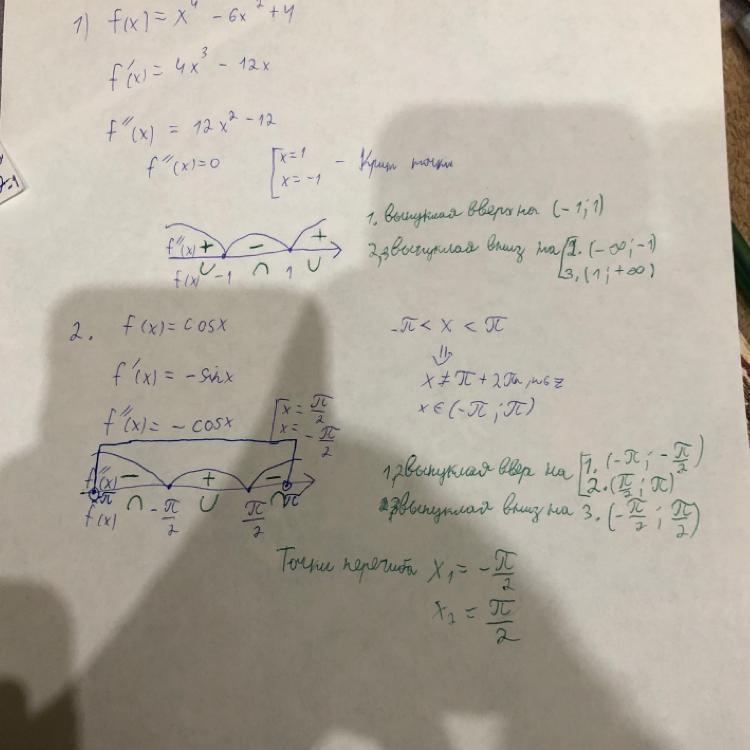 1) f(x) = x⁴ - 6x² + 4
f'(x) = 4x³ - 12x
f''(x) = 12x² - 12
f''(x) = 0 [x = 1 x = -1 - Крит точки
f''(x) + - +
f(x) ∪ -1 ∩ 1 ∪
1. выпуклая вверх на (-1; 1)
2,3 выпуклая вниз на [2. (-∞; -1)
3. (1; +∞)
2. f(x) = cosx
-π < x < π
f'(x) = -sinx
⇓
x ≠ π + 2πn, n∈z
f''(x) = -cosx [x = π/2 x = -π/2
x ∈ (-π; π)
f''(x) - + -
-π ∩ -π/2 ∪ π/2 ∩ π
f(x)
1,2 выпуклая ввер на [1. (-π; -π/2)
2. (π/2; π)
выпуклая вниз на 3. (-π/2; π/2)
Точки перегиба x₁ = -π/2
x₂ = π/2